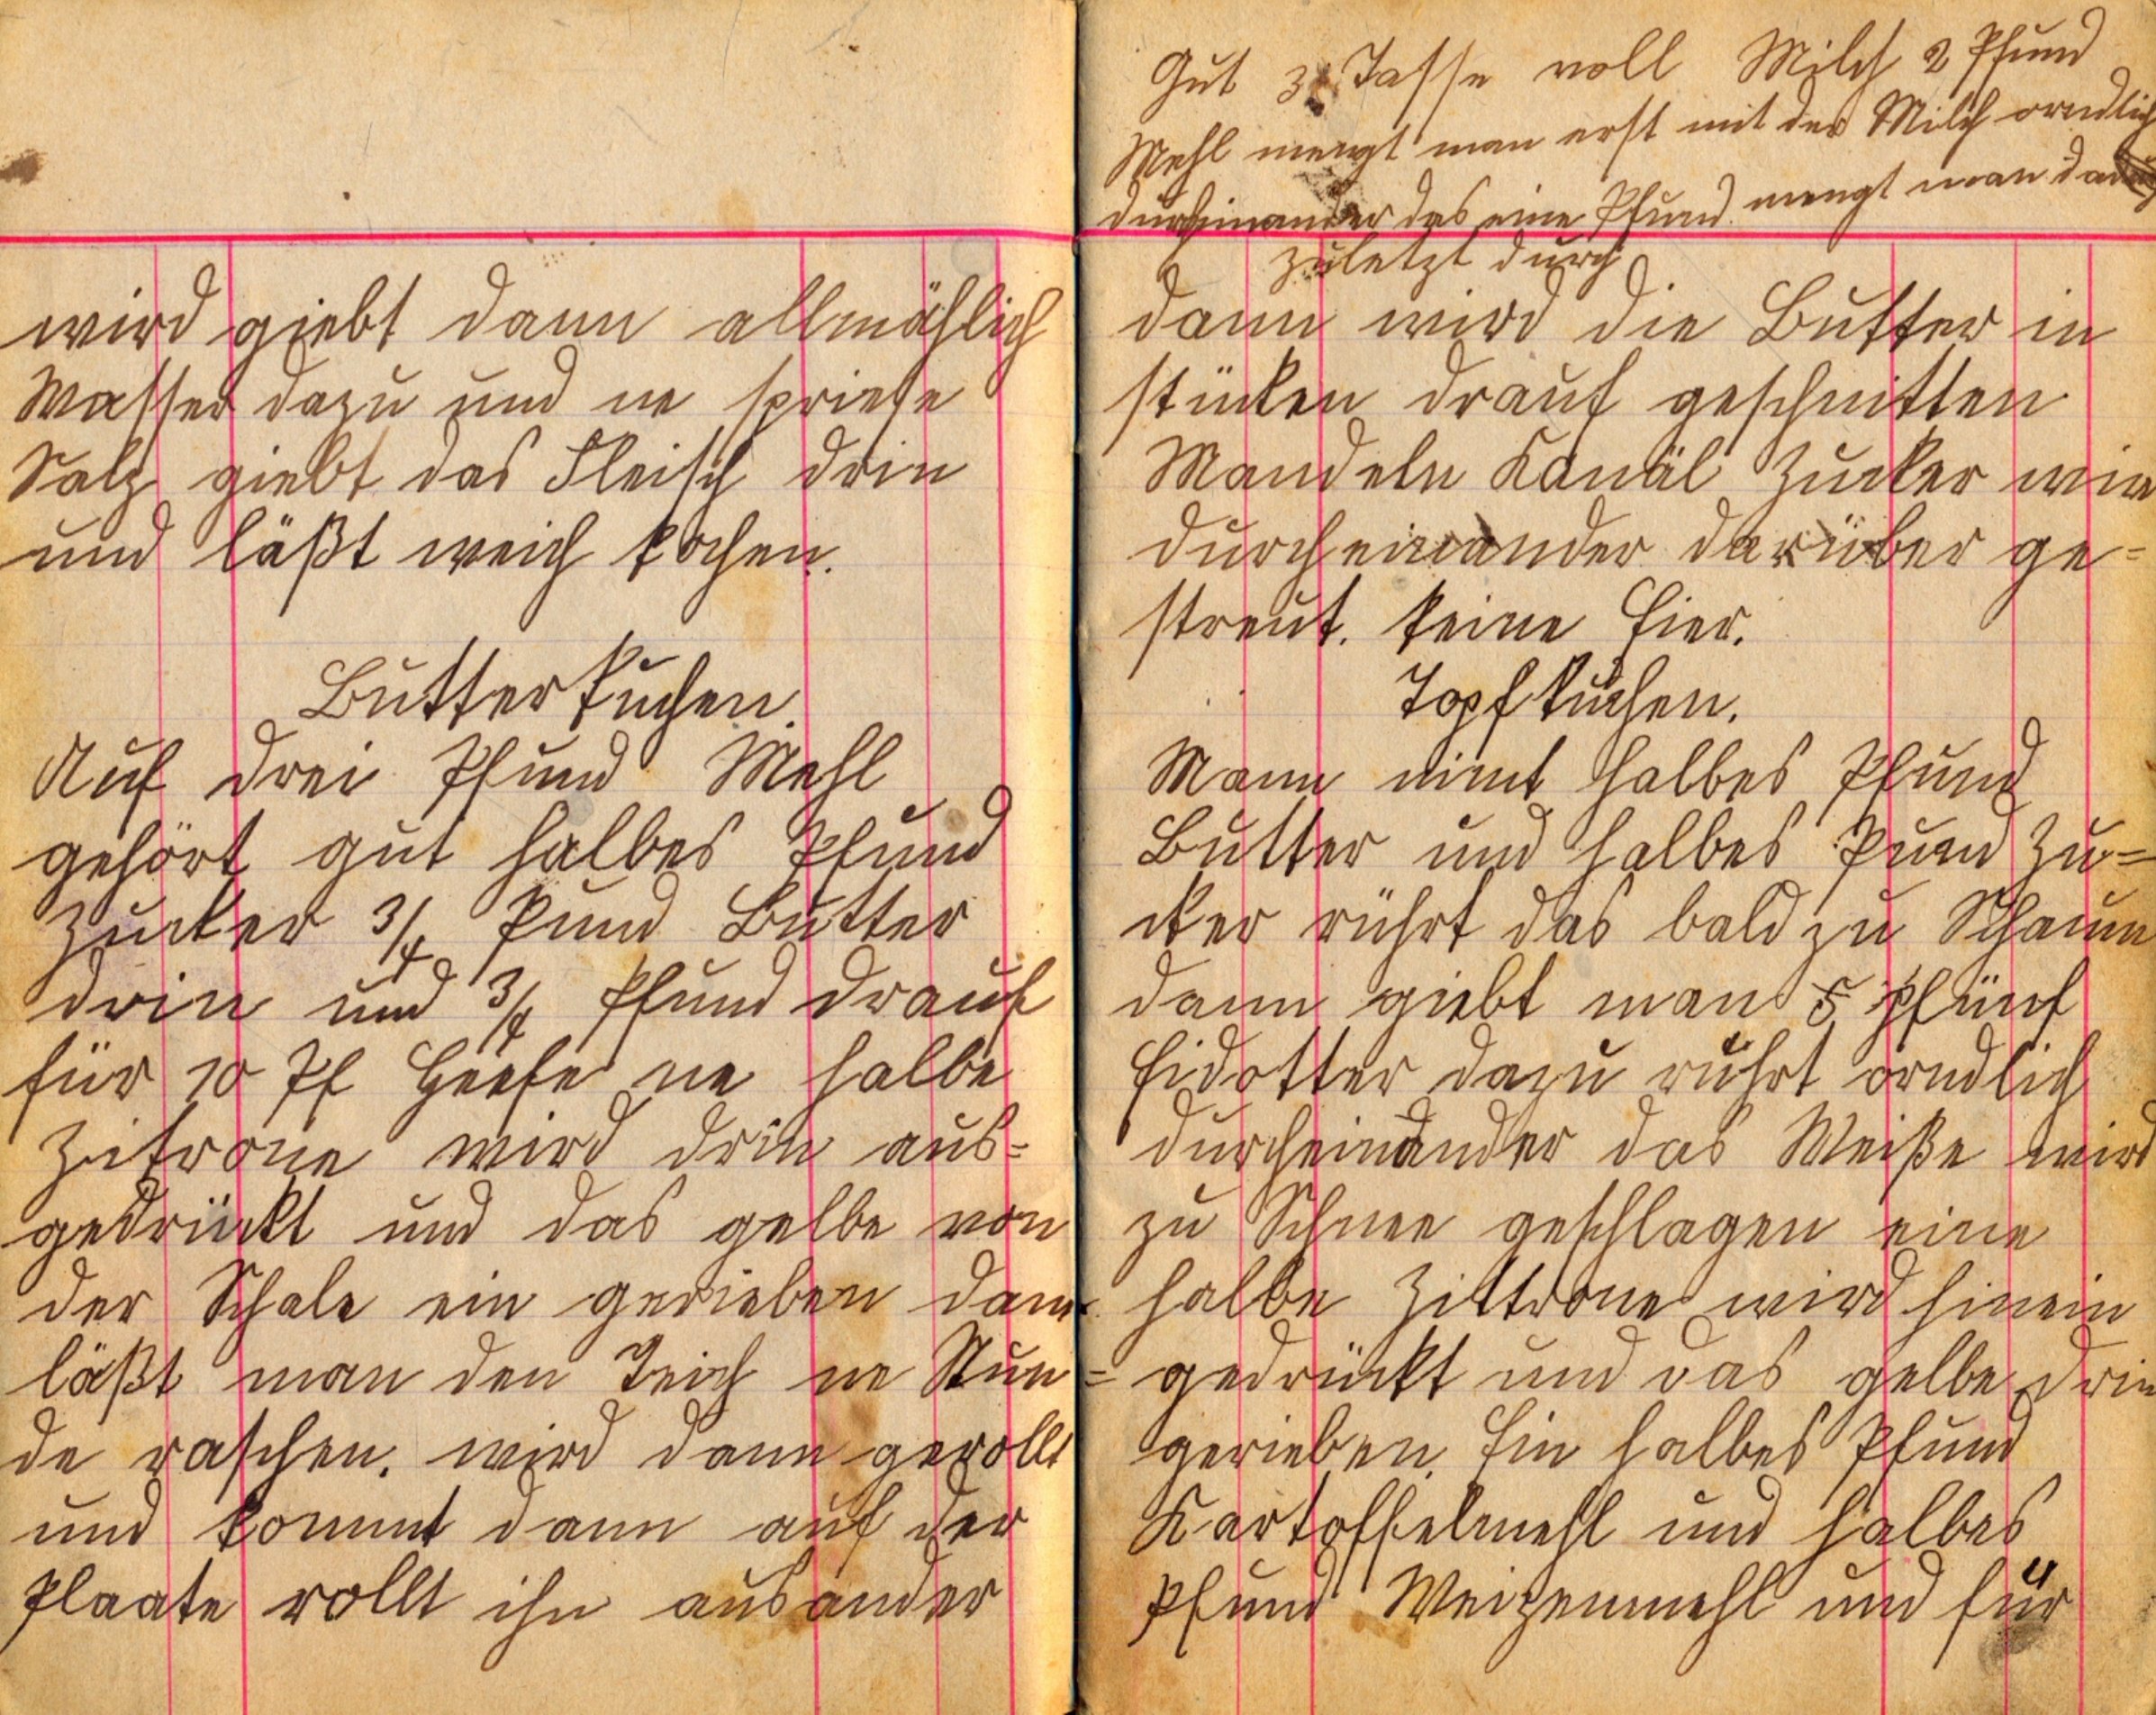 wird giebt dann allmählich
Wasser dazu und ne spriese
Salz giebt das Fleisch drin
und läßt weich kochen.
Butterkuchen.
Auf drei Pfund Mehl
gehört gut halbes Pfund
Zucker 3/4 Pund Butter
drin und 3/4 Pfund drauf
für 10 Pf Heefe ne halbe
Zitrone wird drin aus=
gedrückt und das gelbe von
der Schale ein gerieben dann
läßt man den Teich ne Stun=
de raschen. wird dann gerollt
und kommt dann auf der
Plaate rollt ihn ausander
Gut 3 Tasse voll Milch 2 Pfund
Mehl mengt man erst mit der Milch orndlich
durcheinander das eine Pfund mengt man dann
zuletzt durch
dann wird die Butter in
stücken drauf geschnitten
Mandeln Kanäl Zucker wird
durcheinander darüber ge=
streut. keine Eier.
Topfkuchen.
Mann nimt halbes Pfund
Butter und halbes Pund Zu=
cker rührt das bald zu Schaum
dann giebt man 5 pfünf
Eidotter dazu rührt orndlich
durcheinander das Weiße wird
zu Schnee geschlagen eine
halbe Zittrone wird hinein
gedrückt und das gelbe drin
gerieben. Ein halbes Pfund
Kartoffelmehl und halbes
Pfund Weizenmehl und für